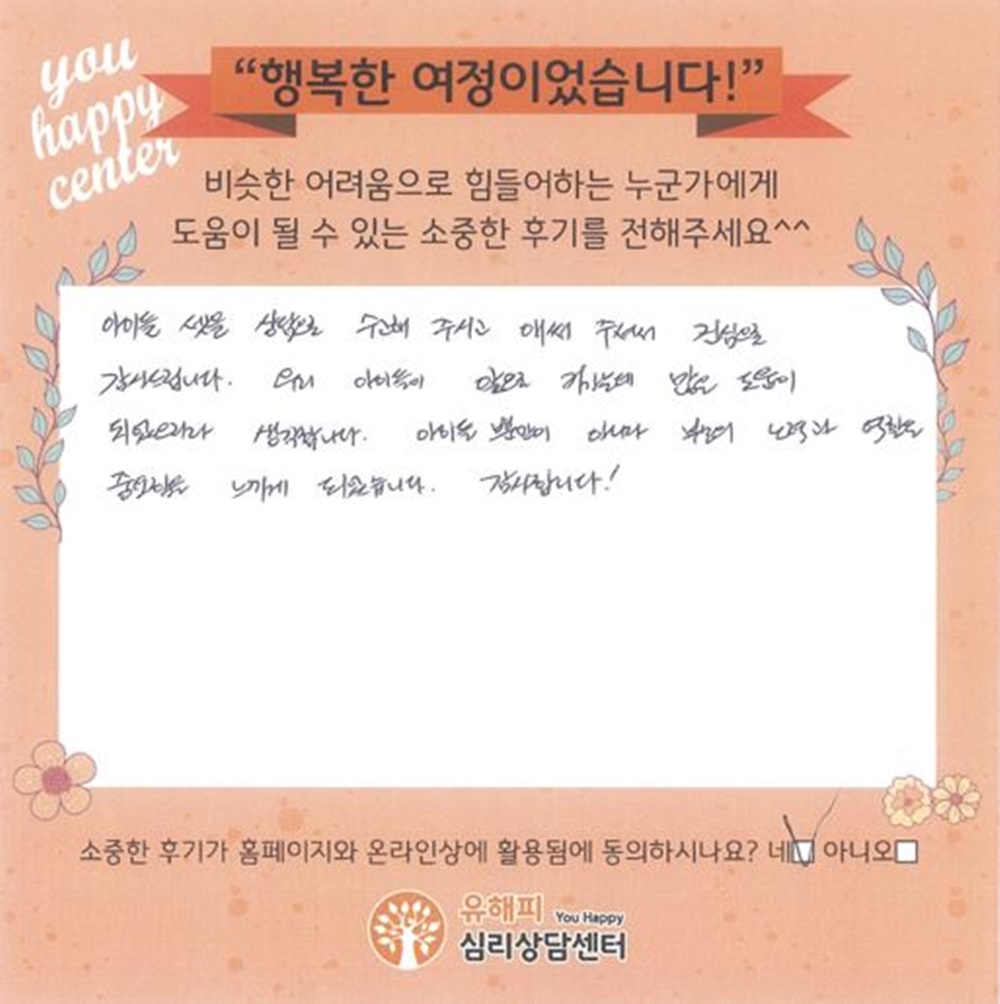 you
happy
center
“행복한 여정이었습니다!”
비슷한 어려움으로 힘들어하는 누군가에게
도움이 될 수 있는 소중한 후기를 전해주세요^^
아이들 셋을 상담으로 수고해 주시고 애써 주셔서 진심으로
감사드립니다. 우리 아이들이 앞으로 커가는데 많은 도움이
되었으리라 생각합니다. 아이들 뿐만이 아니라 부모의 노력과 역할을
중요함을 느끼게 되었습니다. 감사합니다!
소중한 후기가 홈페이지와 온라인상에 활용됨에 동의하시나요? 네 아니오
유해피 You Happy
심리상담센터